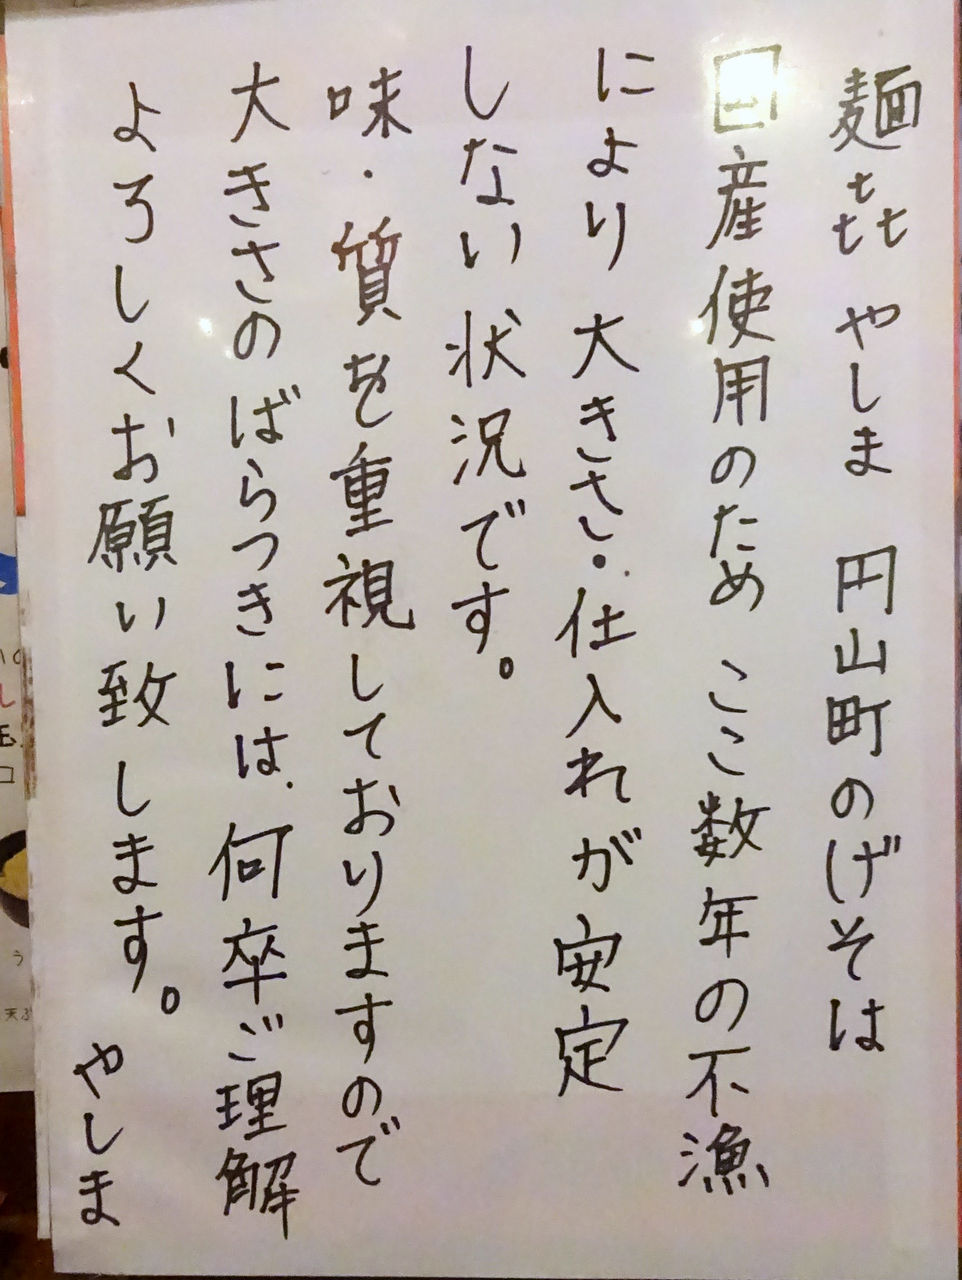 麺㐂 やしま 円山町のげそは
国産使用のため ここ数年の不漁
により 大きさ・仕入れが安定
しない状況です。
味・質を重視しておりますので
大きさのばらつきには、何卒ご理解
よろしくお願い致します。
やしま